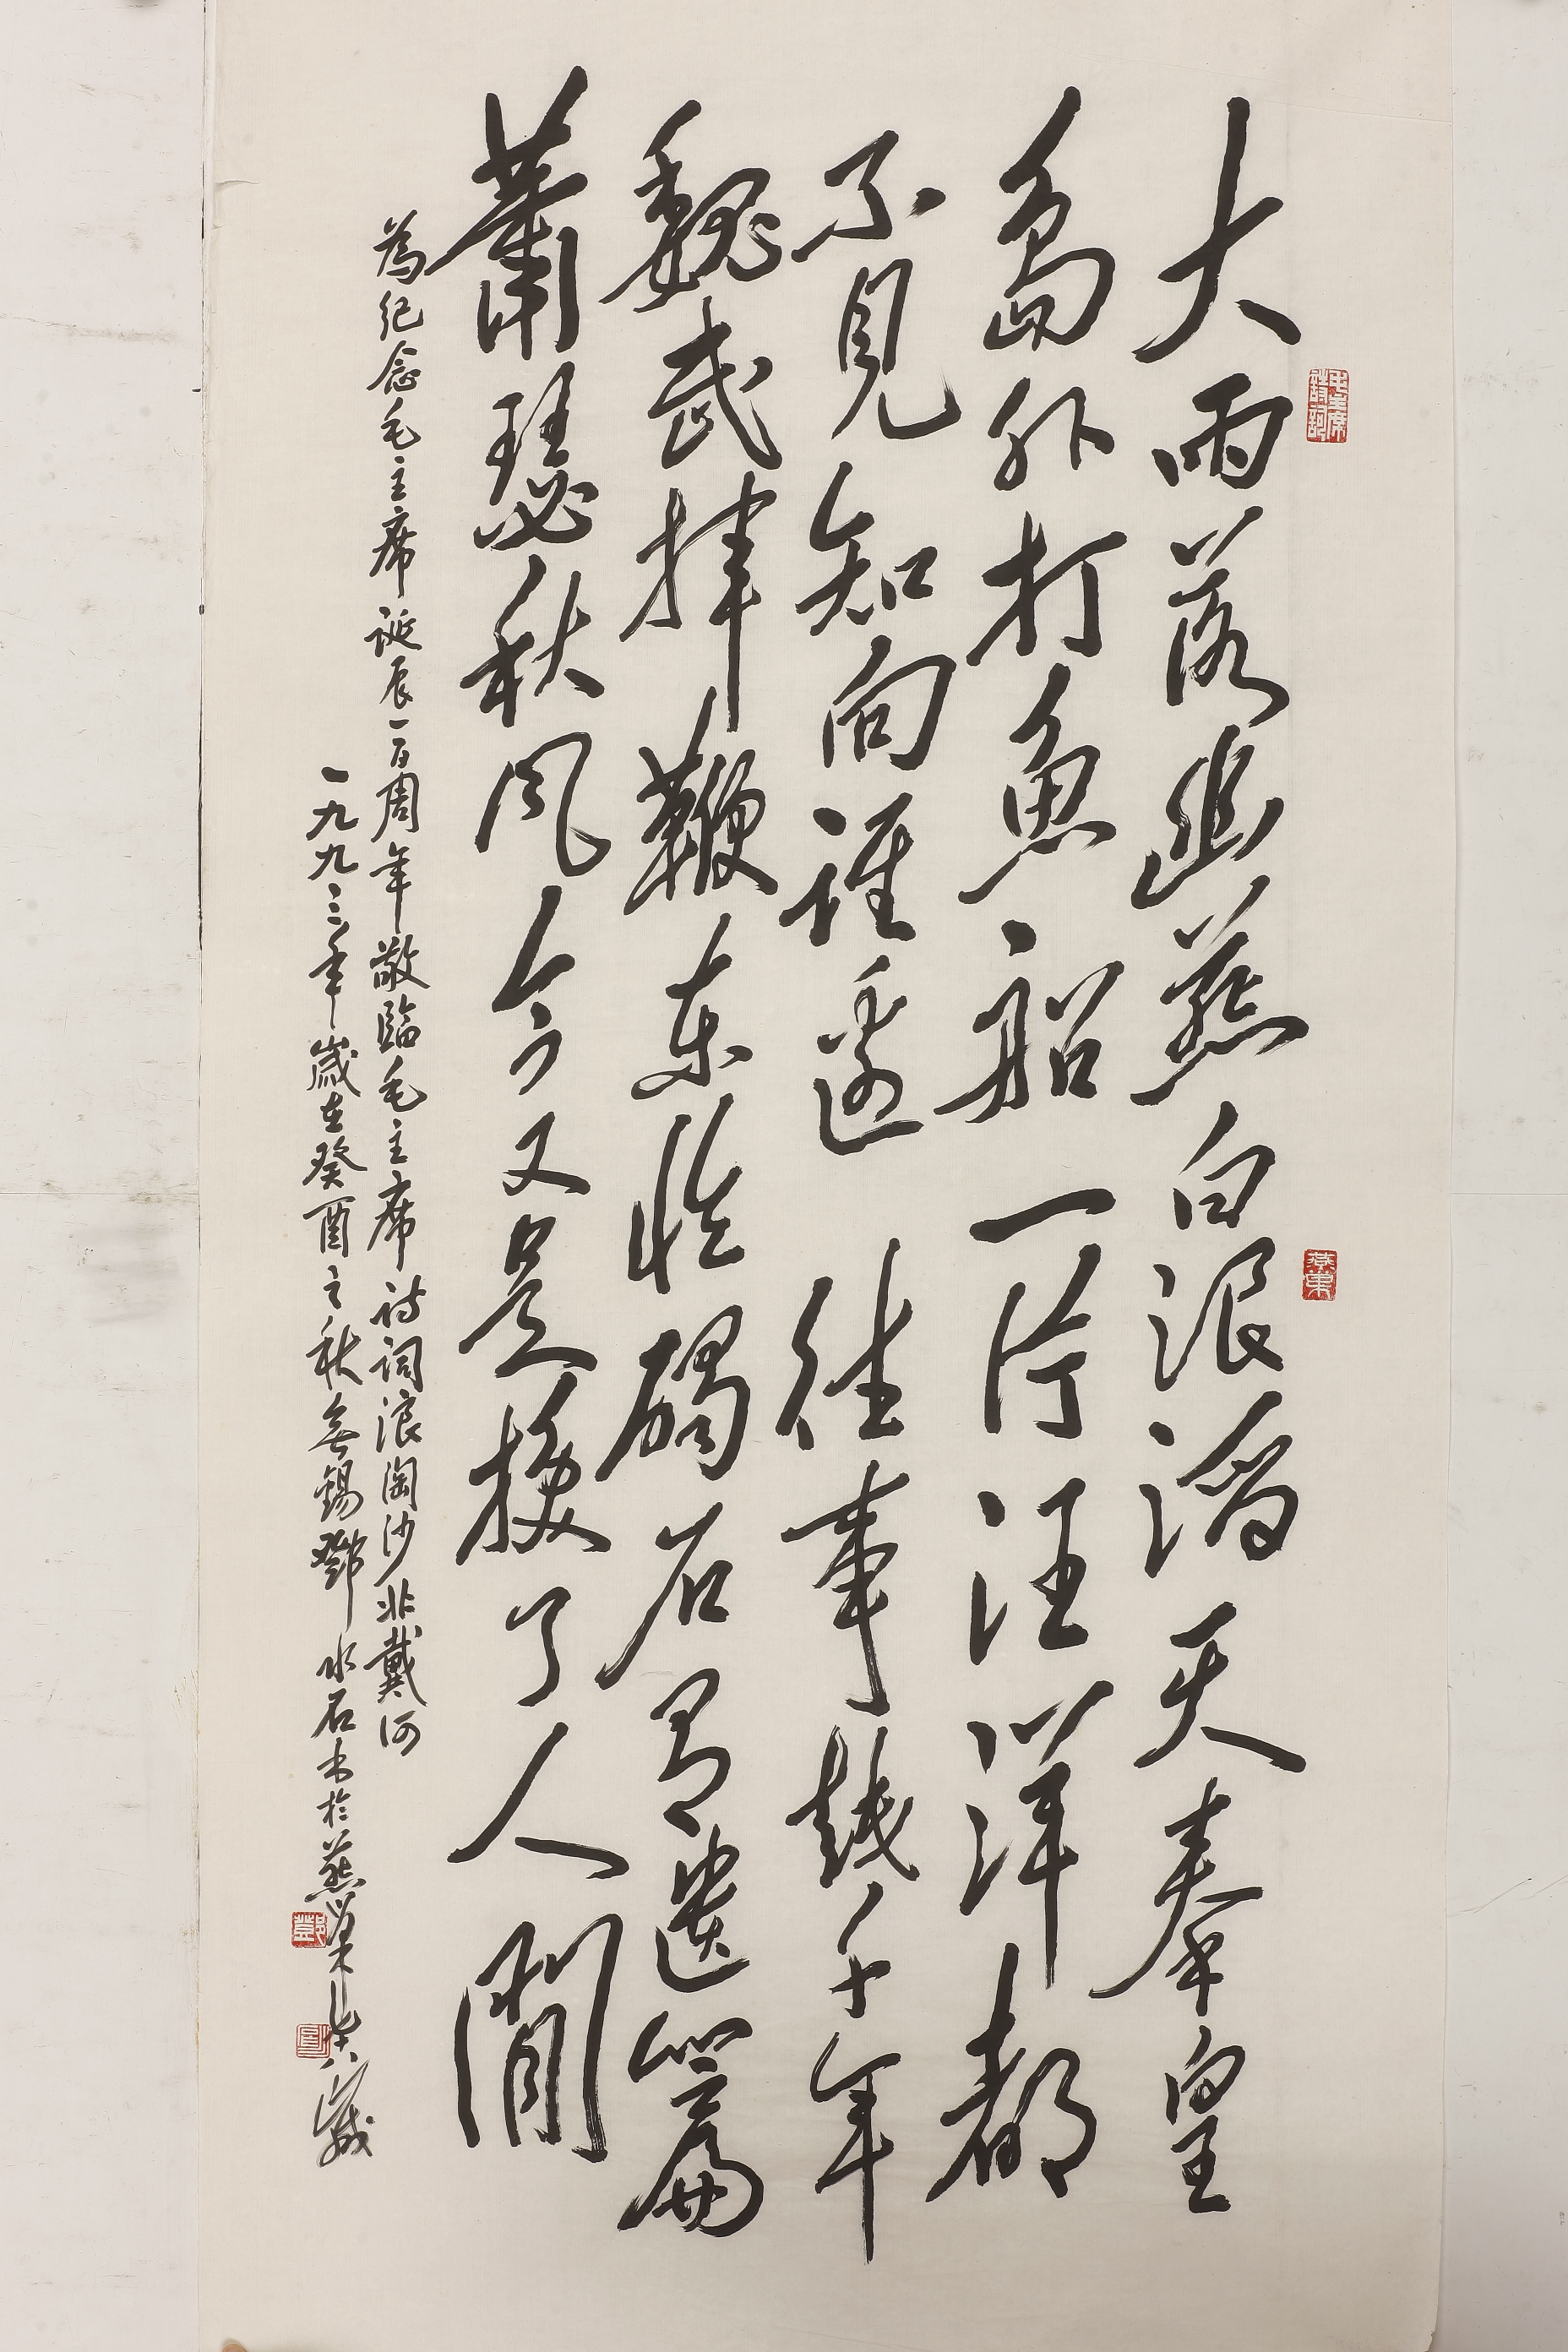 大雨落幽燕白浪滔天秦皇
島外打魚船一片汪洋都
不見知向誰邊 往事越千年
魏武揮鞭東臨碣石有遺篇
蕭瑟秋風今又是換了人間
為紀念毛主席誕辰一百周年敬臨毛主席詩詞浪淘沙北戴河
一九九三年歲在癸酉之秋無錫鄧水石書於燕